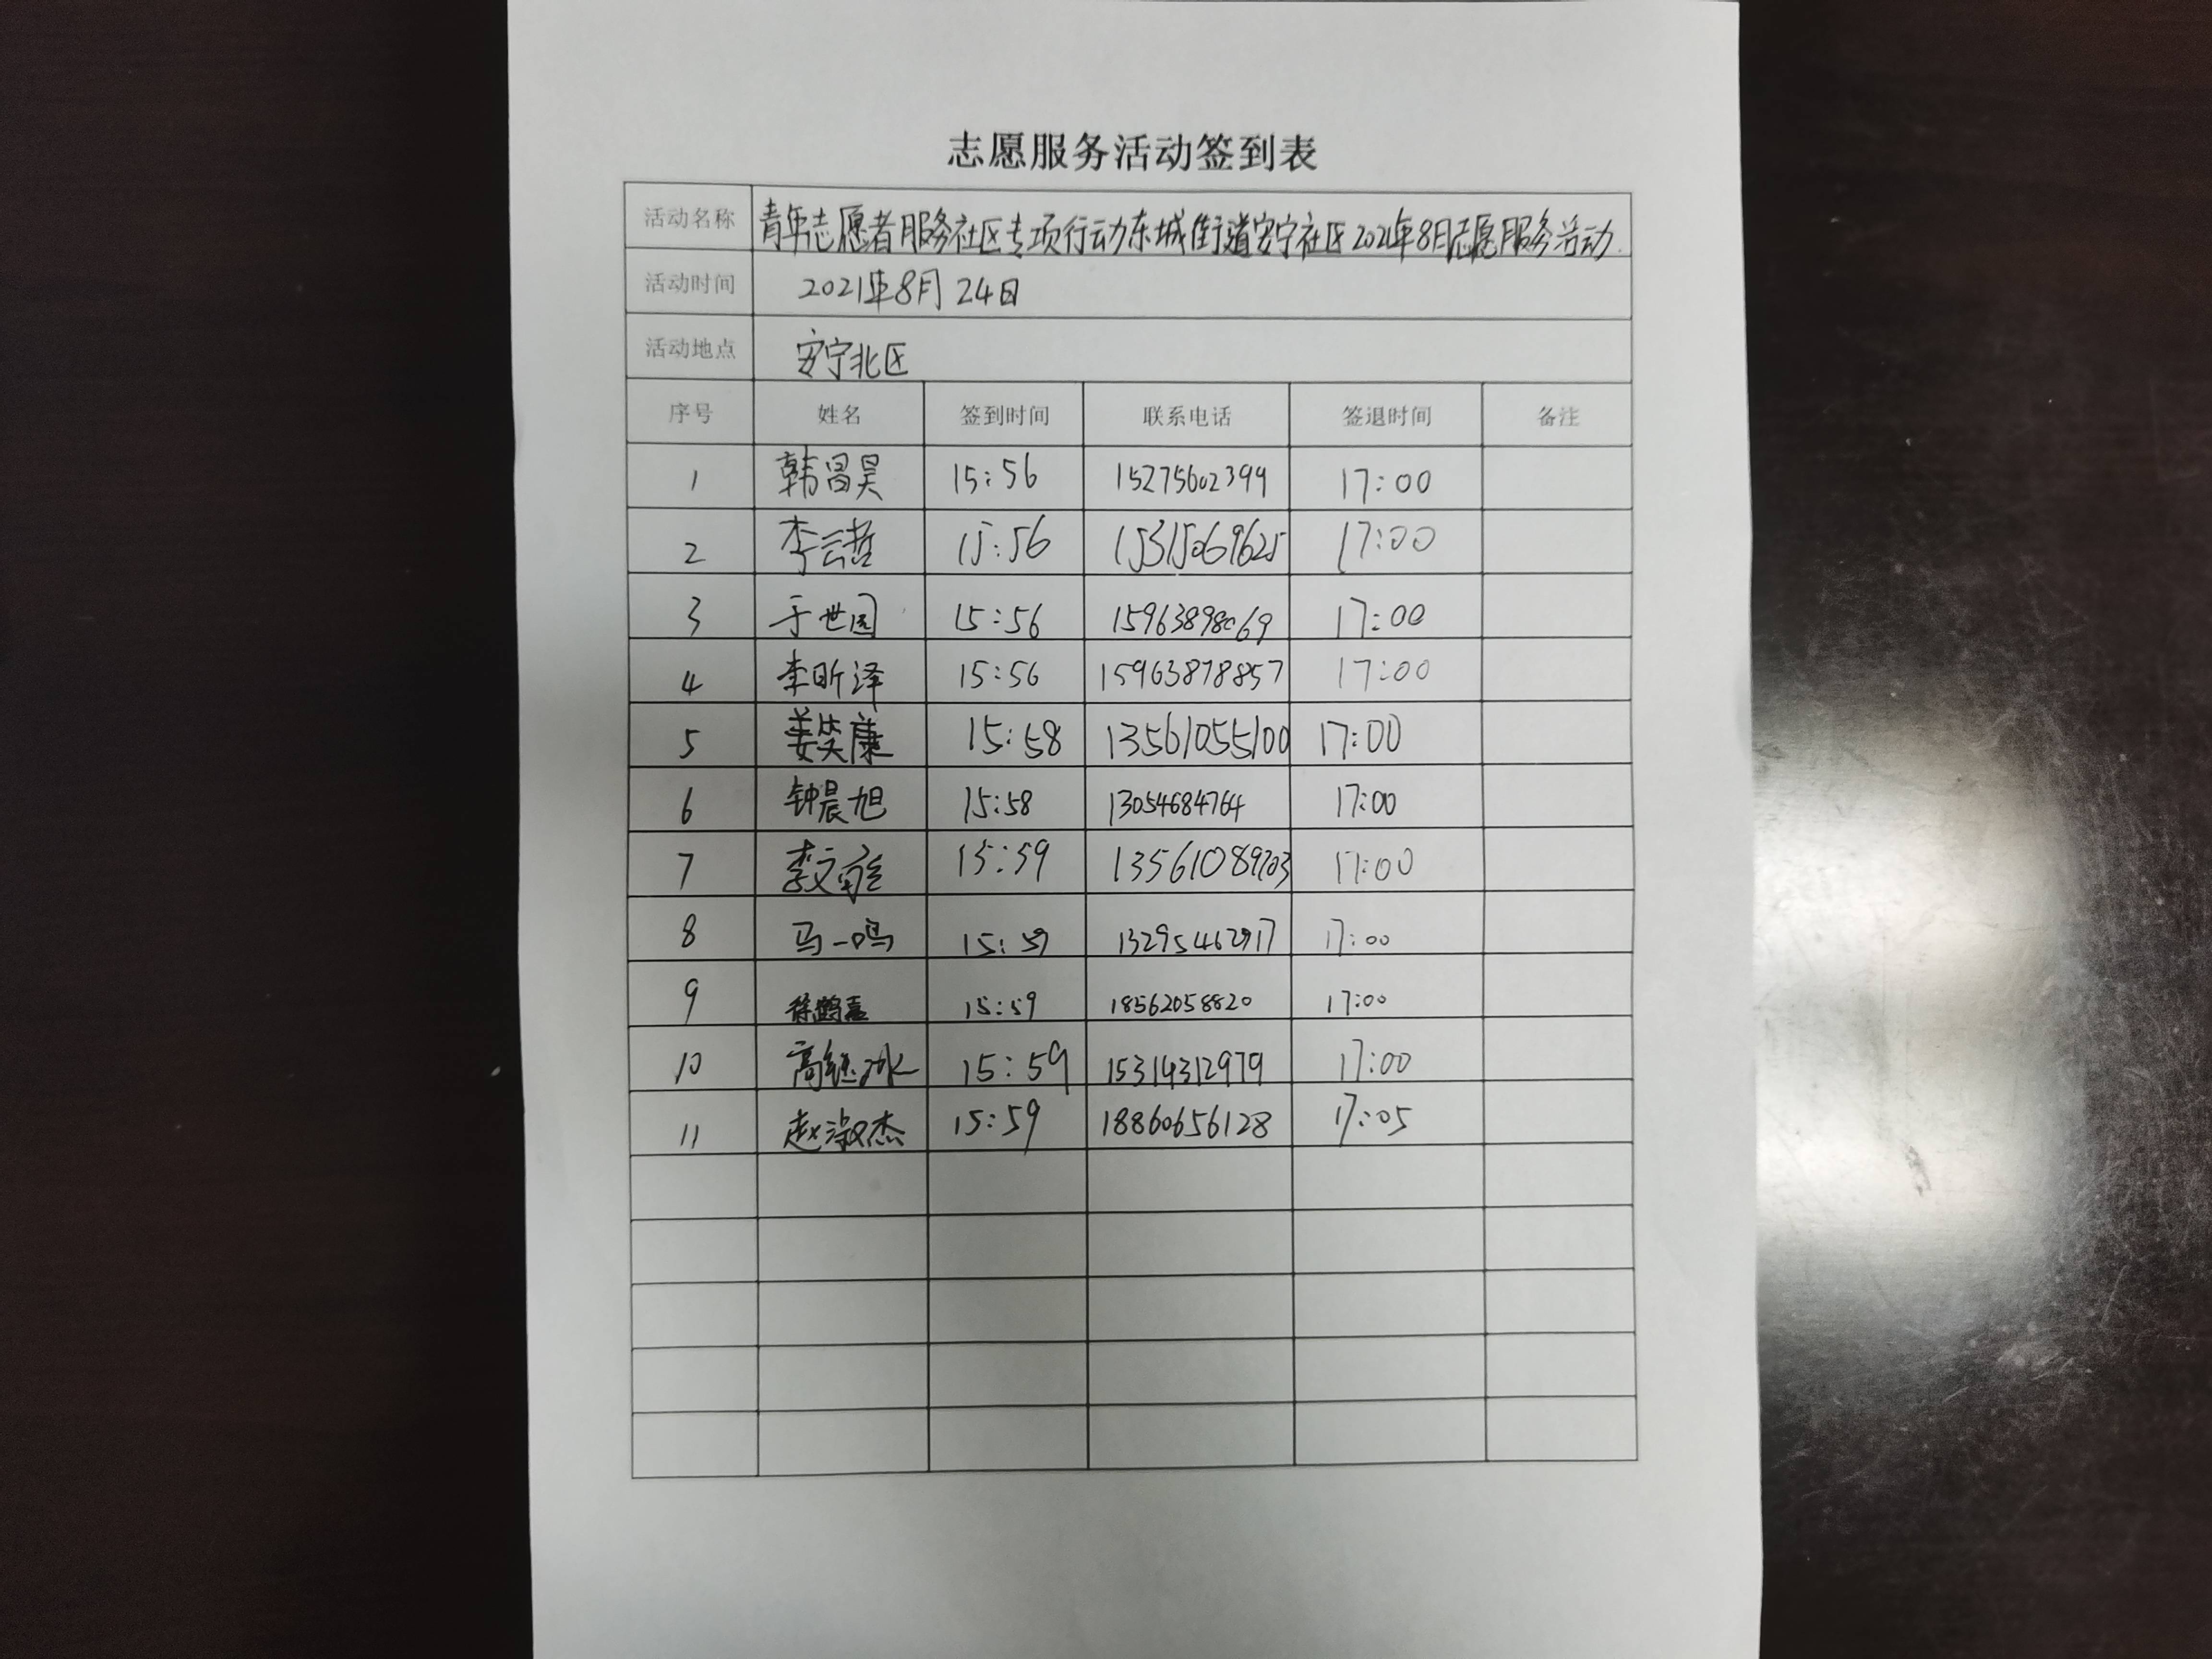 志愿服务活动签到表
活动名称 青年志愿者服务社区专项行动东城街道安宁社区2021年8月志愿服务活动
活动时间 2021年8月24日
活动地点 安宁北区
序号 姓名 签到时间 联系电话 签退时间 备注
1 韩昌昊 15:56 15275602399 17:00
2 李云哲 15:56 15315069625 17:00
3 于世园 15:56 15963898069 17:00
4 李昕泽 15:56 15963878857 17:00
5 姜笑康 15:58 13561055100 17:00
6 钟晨旭 15:58 13054684764 17:00
7 李文 15:59 13561089703 17:00
8 马一鸣 15:59 13295462917 17:00
9 徐鹤嘉 15:59 18562058820 17:00
10 高继冰 15:59 15314312979 17:00
11 赵淑杰 15:59 18860656128 17:05